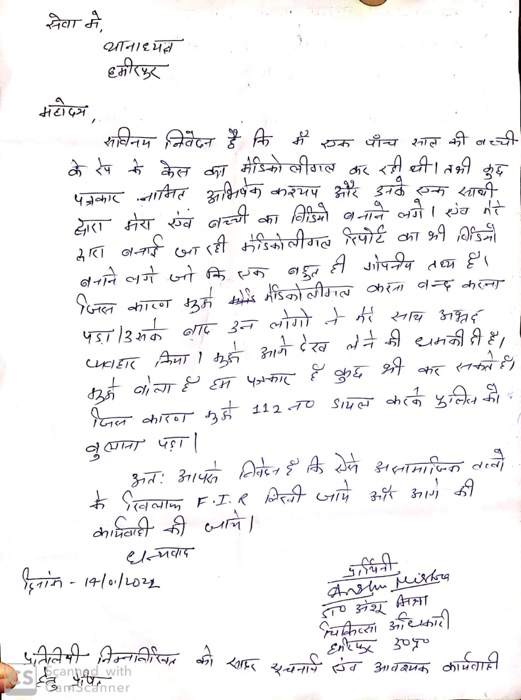 सेवा मे,
थानाध्यक्ष
हमीरपुर
महोदय,
सविनय निवेदन है कि मैं एक पाँच साल की बच्ची
के रेप के केस का मेडिकोलीगल कर रही थी। तभी कुछ
पत्रकार नामित अभिषेक कश्यप और उनके एक साथी
द्वारा मेरा एवं बच्ची का विडियो बनाने लगे। एवं मेरे
द्वारा बनाई जा रही मेडिकोलीगल रिपोर्ट का भी विडियो
बनाने लगे जो कि एक बहुत ही गोपनीय तथ्य है।
जिस कारण मुझे मेडिकोलीगल करना बन्द करना
पड़ा। उसके बाद उन लोगो ने मेरे साथ अभद्र
व्यवहार किया। मुझे आगे देख लेने की धमकी दी है,
मुझे बोला है हम पत्रकार है कुछ भी कर सकते हैं।
जिस कारण मुझे 112 न0 डायल करके पुलिस को
बुलाना पड़ा।
अत: आपसे निवेदन है कि ऐसे असामाजिक तत्वो
के खिलाफ F.I.R लिखी जाये और आगे की
कार्यवाही की जाये।
धन्यवाद
दिनांक - 14/01/2022
प्रार्थिनी
Anshu Mishra
डा0 अंशु मिश्रा
चिकित्सा अधिकारी
हमीरपुर उ0प्र0
प्रतिलिपी निम्नलिखित को सादर सूचनार्थ एंव आवश्यक कार्यवाही
हेतु
CS Scanned with
CamScanner